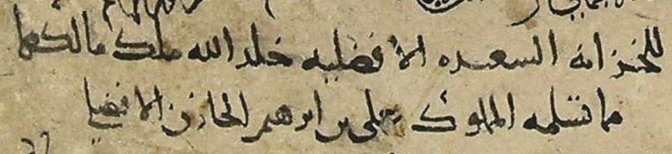 للخزانة السعيدة الافضلية خلد الله ملك مالكها
مما تسلمه المملوك علي بن ابرهيم الخازن الافضلي